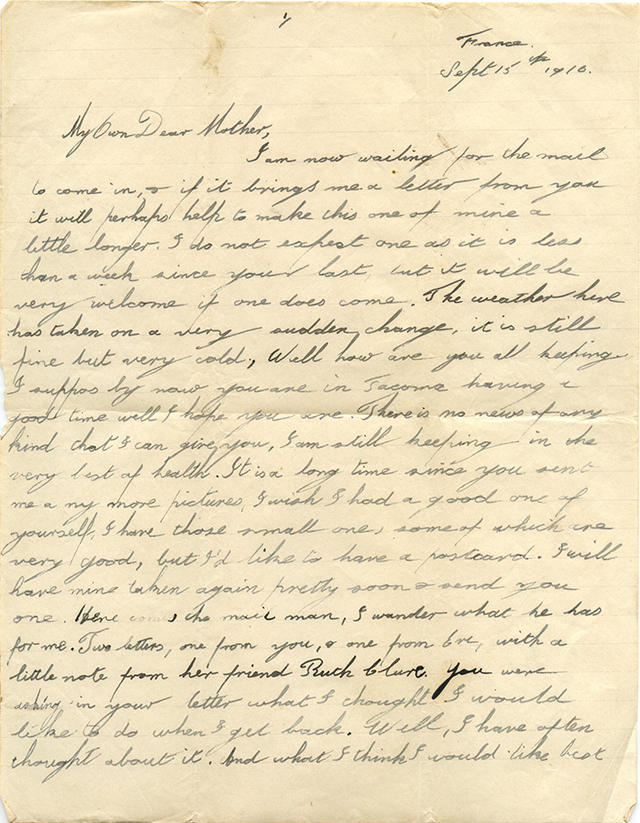 1
France.
Sept 15th 1916.
My Own Dear Mother,
I am now waiting for the mail
to come in, & if it brings me a letter from you
it will perhaps help to make this one of mine a
little longer. I do not expect one as it is less
than a week since your last, but it will be
very welcome if one does come. The weather here
has taken on a very sudden change, it is still
fine but very cold, Well how are you all keeping
I suppos by now you are in Tacoma having a
good time well I hope you are. There is no news of any
kind that I can give you, I am still keeping in the
very best of health. It is a long time since you sent
me a ny more pictures, I wish I had a good one of
yourself, I have those small ones some of which are
very good, but I'd like to have a postcard. I will
have mine taken again pretty soon & send you
one. Here comes the mail man, I wander what he has
for me. Two letters, one from you, & one from Eve, with a
little note from her friend Ruth Clure. You were
asking in your letter what I thought I would
like to do when I get back. Well, I have often
thought about it. And what I think I would like best